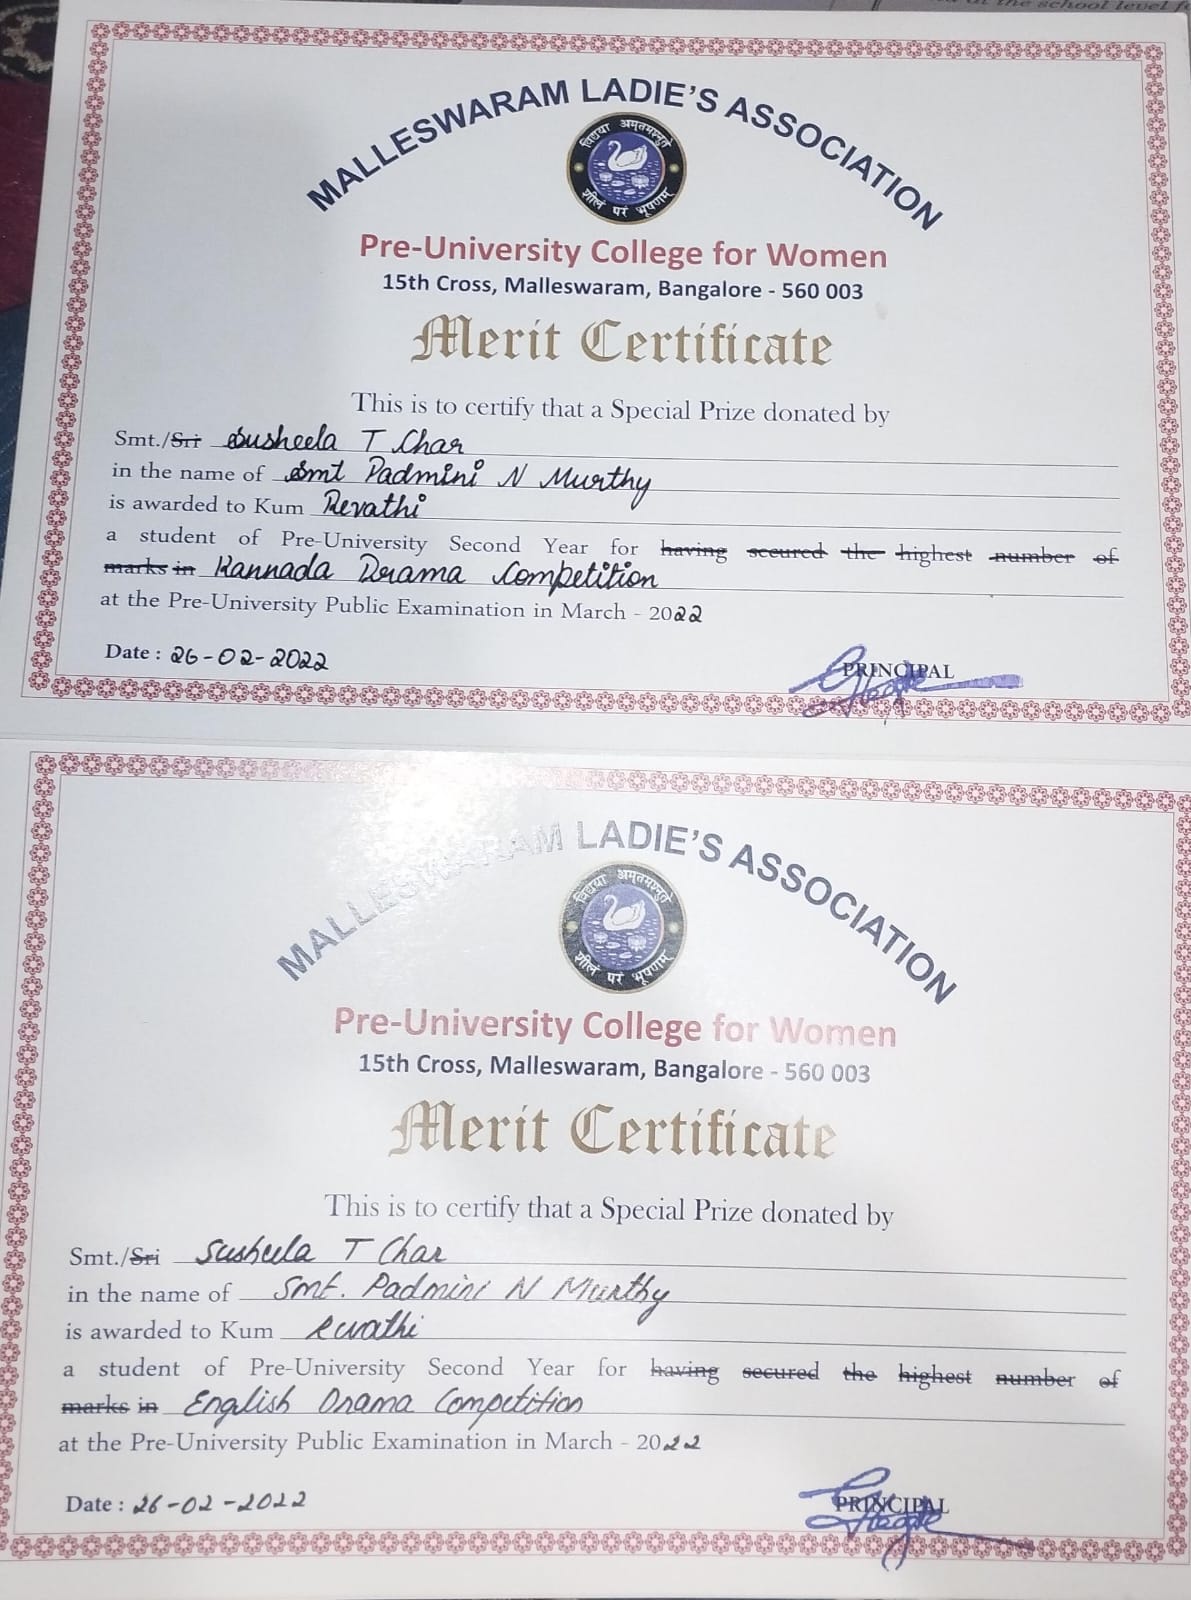 at the school level f
MALLESWARAM LADIE'S ASSOCIATION
विद्यया अमृतमश्नुते
शीलं परं भूषणम्
Pre-University College for Women
15th Cross, Malleswaram, Bangalore - 560 003
Merit Certificate
This is to certify that a Special Prize donated by
Smt./Sri Susheela T Char
in the name of Smt Padmini N Murthy
is awarded to Kum Revathi
a student of Pre-University Second Year for having secured the highest number of
marks in Kannada Drama Competition
at the Pre-University Public Examination in March - 2022
Date : 26-02-2022
PRINCIPAL
MALLESWARAM LADIE'S ASSOCIATION
विद्यया अमृतमश्नुते
शीलं परं भूषणम्
Pre-University College for Women
15th Cross, Malleswaram, Bangalore - 560 003
Merit Certificate
This is to certify that a Special Prize donated by
Smt./Sri Susheela T Char
in the name of Smt. Padmini N Murthy
is awarded to Kum Revathi
a student of Pre-University Second Year for having secured the highest number of
marks in English Drama Competition
at the Pre-University Public Examination in March - 2022
Date : 26-02-2022
PRINCIPAL